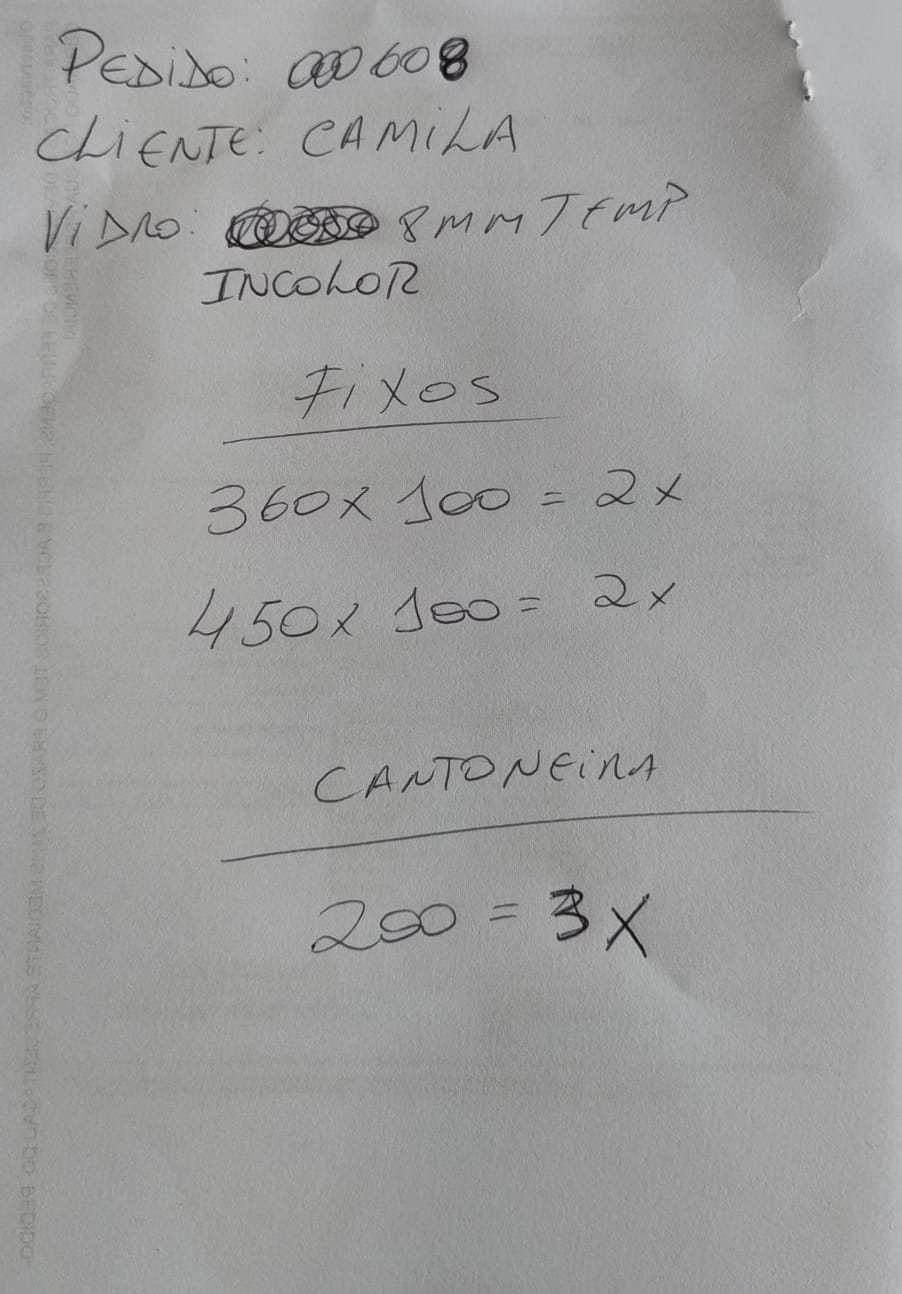 PEDIDO: 000608
CLIENTE: CAMILA
VIDRO: 8MM TEMP
INCOLOR
FIXOS
360 x 100 = 2x
450 x 100 = 2x
CANTONEIRA
200 = 3X